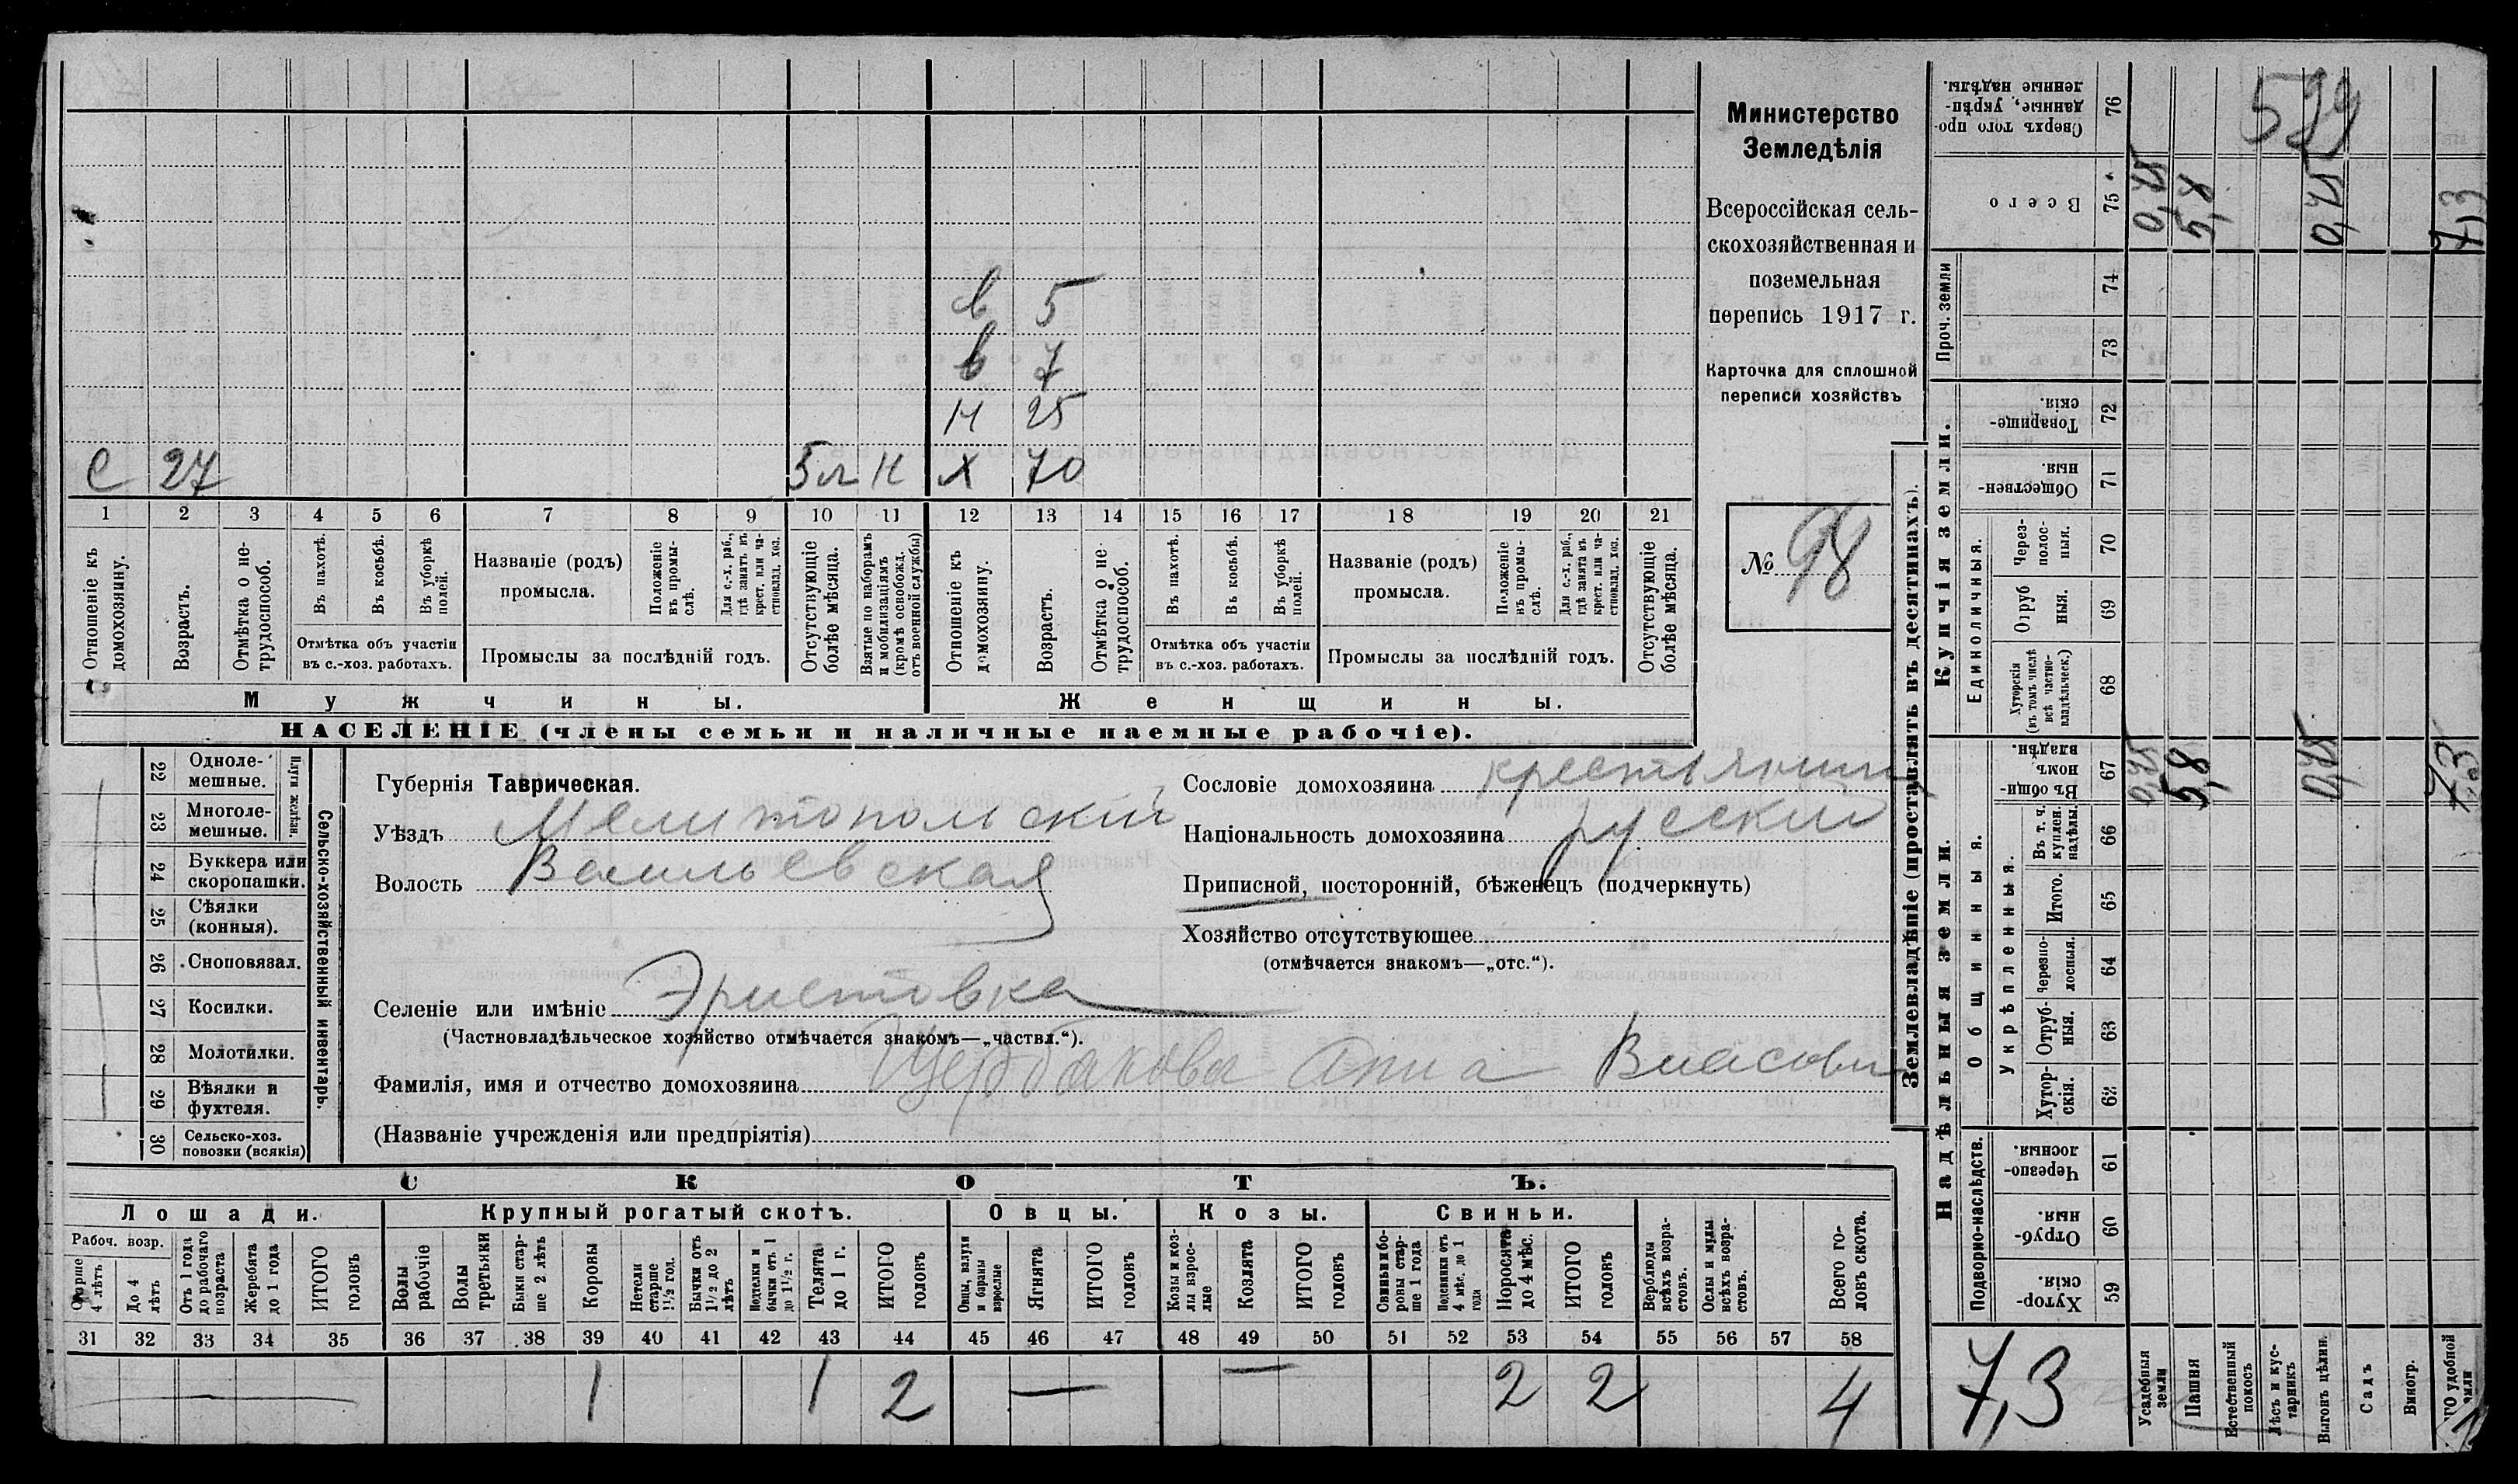 в 5
в 7
н 25
С 27 5 л н х 70
1 2 3 4 5 6 7 8 9 10 11 12 13 14 15 16 17 18 19 20 21
Отношеніе къ домохозяину.
Возрастъ.
Отмѣтка о нетрудоспособ.
Въ пахотѣ.
Въ косьбѣ.
Въ уборкѣ полей.
Отмѣтка объ участіи
въ с.-хоз. работахъ.
Названіе (родъ)
промысла.
Положеніе въ промыслѣ.
Для с.-х. раб., гдѣ занятъ въ крест. или частновлад. хоз.
Промыслы за послѣдній годъ.
Отсутствующіе болѣе мѣсяца.
Взятые по наборамъ и мобилизаціямъ (кромѣ освобожд. отъ военной службы)
Отношеніе къ домохозяину.
Возрастъ.
Отмѣтка о нетрудоспособ.
Въ пахотѣ.
Въ косьбѣ.
Въ уборкѣ полей.
Отмѣтка объ участіи
въ с.-хоз. работахъ.
Названіе (родъ)
промысла.
Положеніе въ промыслѣ.
Для с.-х. раб., гдѣ занята въ крест. или частновлад. хоз.
Промыслы за послѣдній годъ.
Отсутствующіе болѣе мѣсяца.
Мужчины.
Женщины.
НАСЕЛЕНІЕ (члены семьи и наличные наемные рабочіе).
Министерство
Земледѣлія
Всероссійская сель-
скохозяйственная и
поземельная
перепись 1917 г.
Карточка для сплошной
переписи хозяйствъ
№ 98
22 Одноле-
мешные.
23 Многоле-
мешные.
Плуги желѣзн.
24 Буккера или
скоропашки.
25 Сѣялки
(конныя).
26 Сноповязал.
27 Косилки.
28 Молотилки.
29 Вѣялки и
фухтеля.
30 Сельско-хоз.
повозки (всякія)
Сельско-хозяйственный инвентарь.
Губернія Таврическая.
Уѣздъ Мелитопольскій
Волость Васильевская
Селеніе или имѣніе Эристовка
(Частновладѣльческое хозяйство отмѣчается знакомъ—„частвл.“).
Фамилія, имя и отчество домохозяина Щербакова Анна Власовн
(Названіе учрежденія или предпріятія)
Сословіе домохозяина
Національность домохозяина русскій
Приписной, посторонній, бѣженецъ (подчеркнуть)
Хозяйство отсутствующее
(отмѣчается знакомъ—„отс.“).
СКОТЪ.
Лошади. Крупный рогатый скотъ. Овцы. Козы. Свиньи.
Рабоч. возр.
Старше 4 лѣтъ
До 4 лѣтъ
Отъ 1 года до рабочаго возраста
Жеребята до 1 года
ИТОГО головъ
Волы рабочіе
Волы третьяки
Быки старше 2 лѣтъ
Коровы
Нетели старше 1½ год.
Бычки отъ 1½ до 2 лѣтъ
Подтелки и бычки отъ 1 до 1½ г.
Телята до 1 г.
ИТОГО головъ
Овцы, валухи и бараны взрослые
Ягнята
ИТОГО головъ
Козы и козлы взрослые
Козлята
ИТОГО головъ
Свиньи и боровы старше 1 года
Подсвинки отъ 4 мѣс. до 1 года
Поросята до 4 мѣс.
ИТОГО головъ
Верблюды всѣхъ возрастовъ.
Ослы и мулы всѣхъ возрастовъ.
Всего головъ скота.
31 32 33 34 35 36 37 38 39 40 41 42 43 44 45 46 47 48 49 50 51 52 53 54 55 56 57 58
— 1 1 2 — — 2 2 4
Землевладѣніе (проставлять въ десятинахъ).
599
Сверхъ того проданные, укрѣпленные надѣлы. 76
Всего 75 0,75 5,8 0,75 7,3
Проч. земли
74
73
Купчія земли.
Товарищескія. 72
Общественныя. 71
Единоличныя.
Черезполосныя. 70
Отрубныя. 69
Хуторскія (въ томъ числѣ всѣ частновладѣльческ.) 68
Надѣльныя земли.
Общинныя.
Въ общиномъ владѣн. 67 0,75 5,8 0,75 7,3
Укрѣпленныя.
Въ т. ч. куплен. надѣлы. 66
Итого. 65
Черезполосныя. 64
Отрубныя. 63
Хуторскія. 62
Подворно-наслѣдств.
Черезполосныя. 61
Отрубныя. 60
Хуторскія. 59
7,3
Усадебныя земли
Пашня
Естественный покосъ
Лѣсъ и кустарникъ
Выгонъ цѣлин.
Садъ
Виногр.
удобной